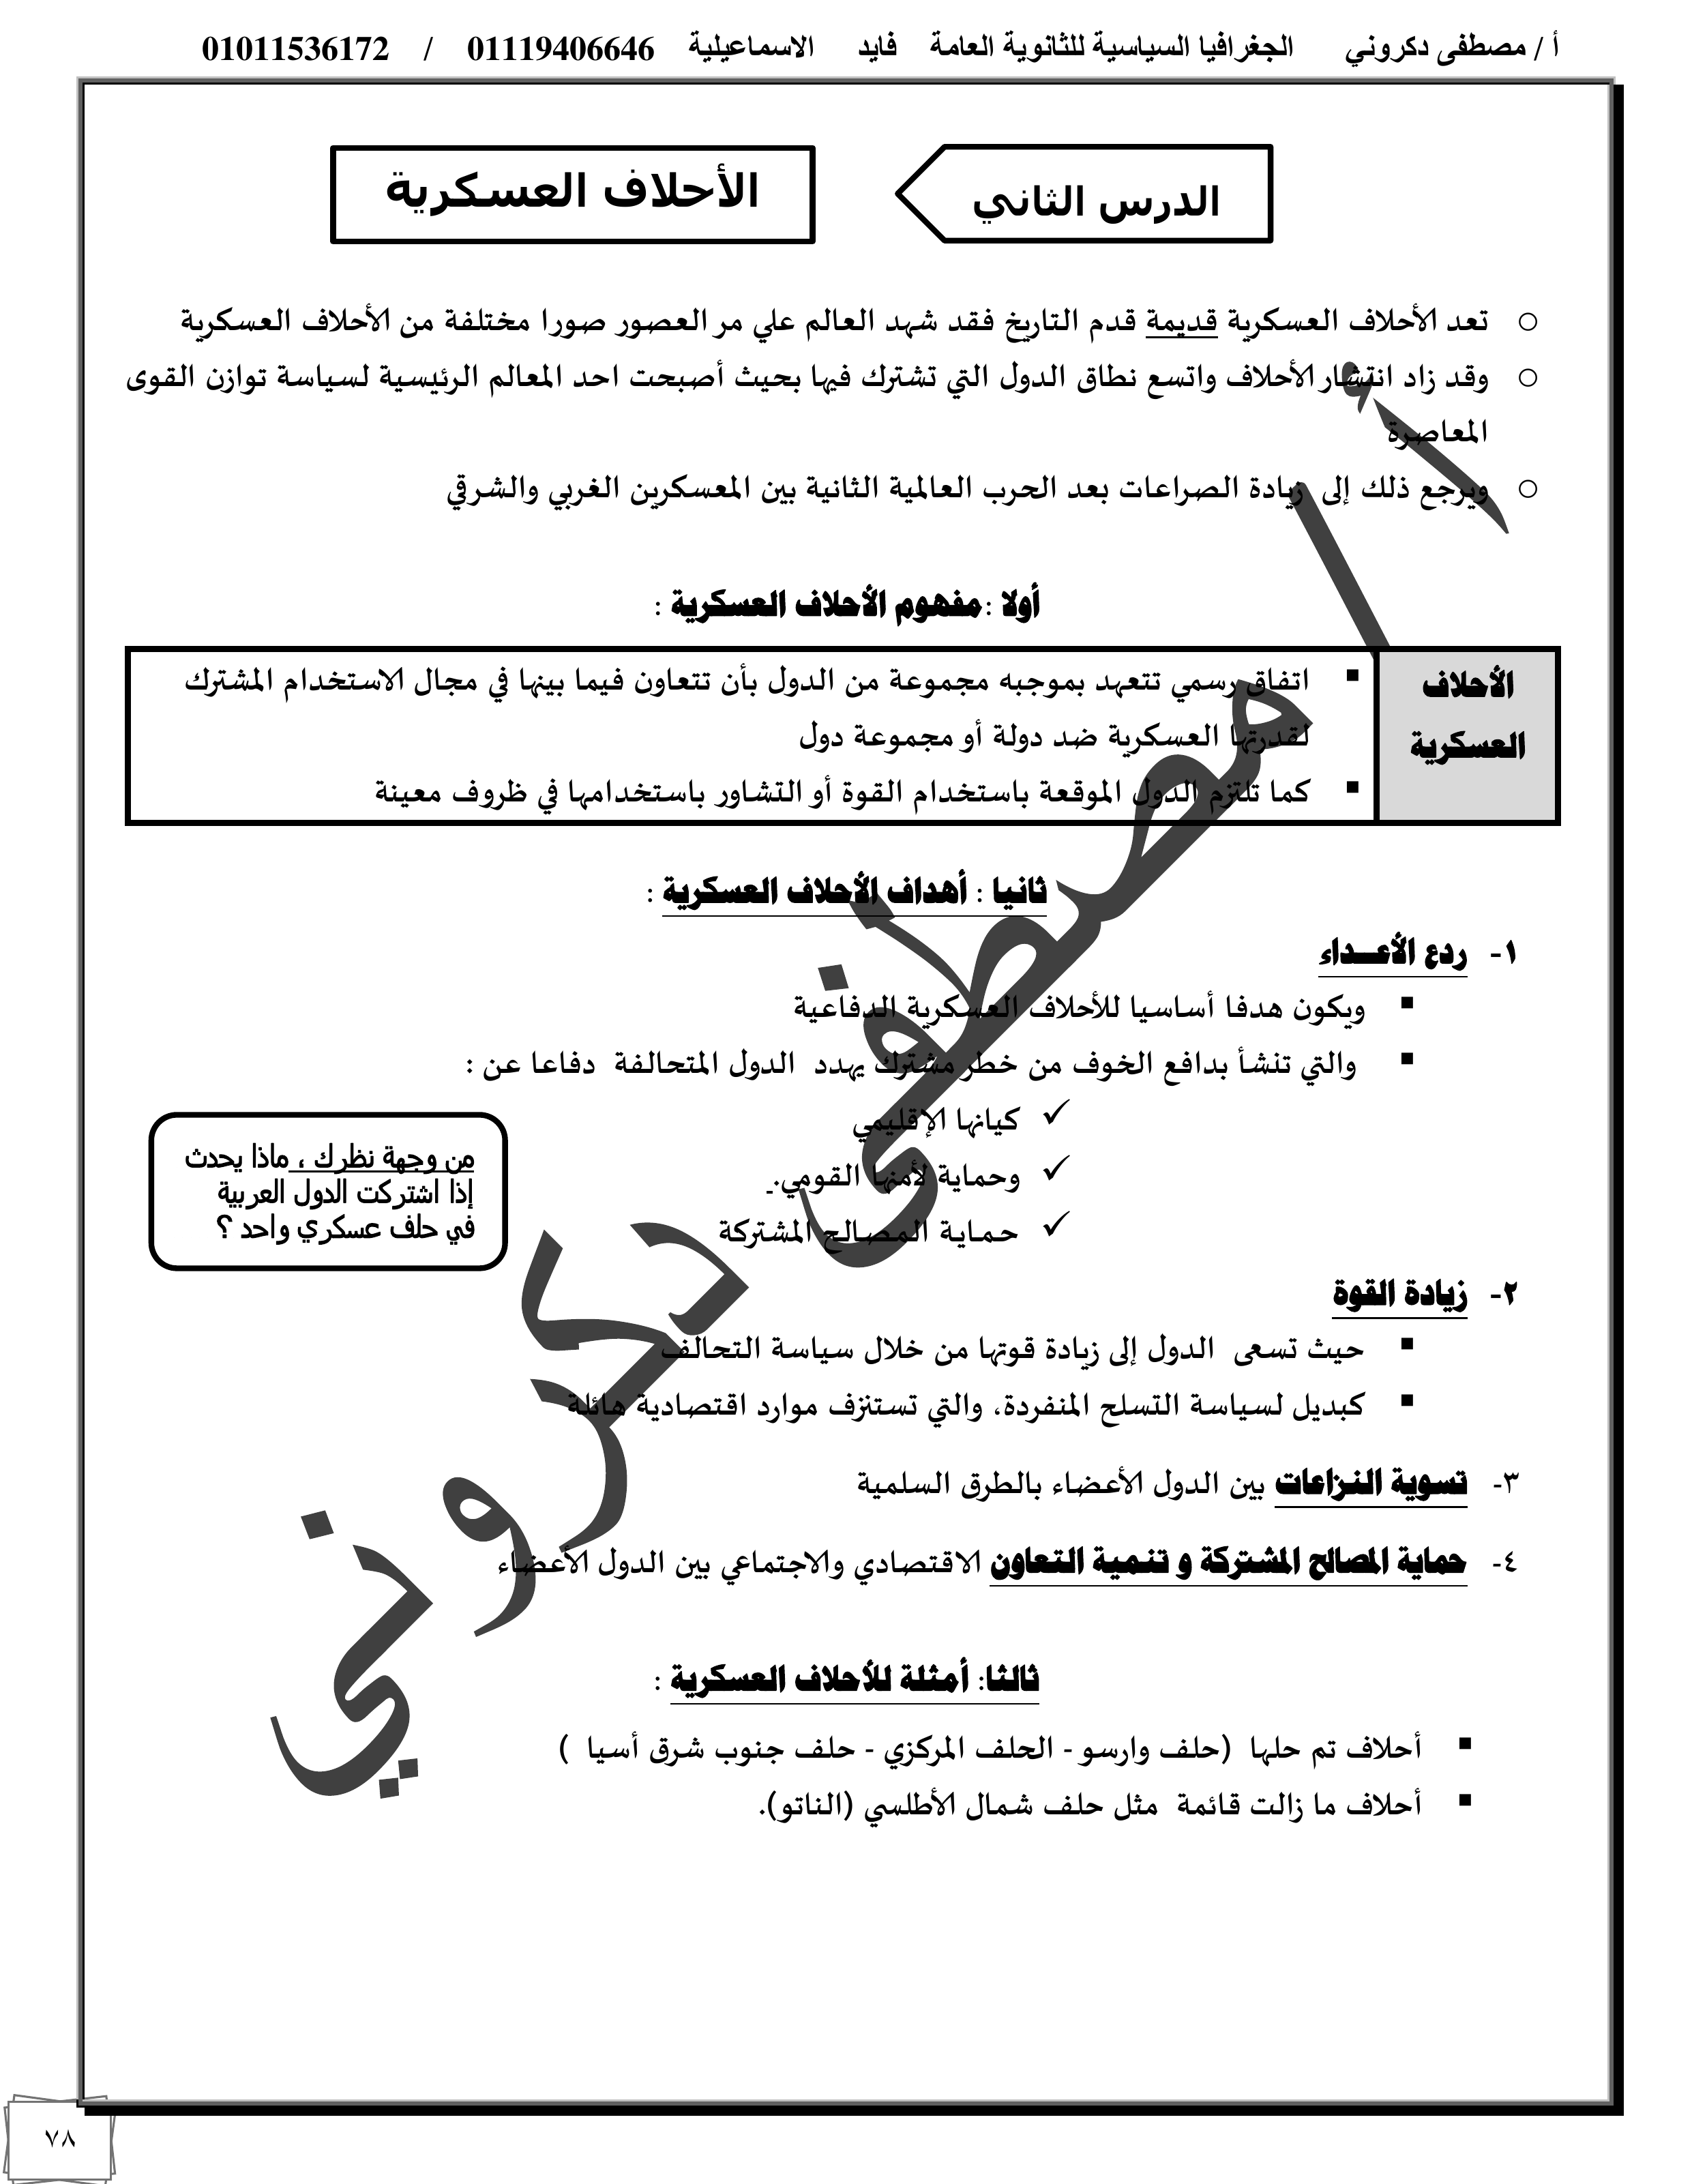 أ / مصطفى دكروني الجغرافيا السياسية للثانوية العامة فايد الاسماعيلية 01119406646 / 01011536172
الدرس الثاني
الأحلاف العسكرية
○ تعد الأحلاف العسكرية قديمة قدم التاريخ فقد شهد العالم علي مر العصور صورا مختلفة من الأحلاف العسكرية
○ وقد زاد انتشار الأحلاف واتسع نطاق الدول التي تشترك فيها بحيث أصبحت احد المعالم الرئيسية لسياسة توازن القوى
المعاصرة
○ ويرجع ذلك إلى زيادة الصراعات بعد الحرب العالمية الثانية بين المعسكرين الغربي والشرقي
أولا : مفهوم الأحلاف العسكرية :
الأحلاف
العسكرية
▪ اتفاق رسمي تتعهد بموجبه مجموعة من الدول بأن تتعاون فيما بينها في مجال الاستخدام المشترك
لقدرتها العسكرية ضد دولة أو مجموعة دول
▪ كما تلتزم الدول الموقعة باستخدام القوة أو التشاور باستخدامها في ظروف معينة
ثانيا : أهداف الأحلاف العسكرية :
١- ردع الأعـــداء
▪ ويكون هدفا أساسيا للأحلاف العسكرية الدفاعية
▪ والتي تنشأ بدافع الخوف من خطر مشترك يهدد الدول المتحالفة دفاعا عن :
✓ كيانها الإقليمي
✓ وحماية لأمنها القومي.
✓ حماية المصالح المشتركة
من وجهة نظرك ، ماذا يحدث
إذا اشتركت الدول العربية
في حلف عسكري واحد ؟
٢- زيادة القوة
▪ حيث تسعى الدول إلى زيادة قوتها من خلال سياسة التحالف
▪ كبديل لسياسة التسلح المنفردة، والتي تستنزف موارد اقتصادية هائلة
٣- تسوية النزاعات بين الدول الأعضاء بالطرق السلمية
٤- حماية المصالح المشتركة و تنمية التعاون الاقتصادي والاجتماعي بين الدول الأعضاء
ثالثا: أمثلة للأحلاف العسكرية :
▪ أحلاف تم حلها (حلف وارسو - الحلف المركزي - حلف جنوب شرق أسيا )
▪ أحلاف ما زالت قائمة مثل حلف شمال الأطلسي (الناتو).
أ / مصطفى دكروني
٧٨